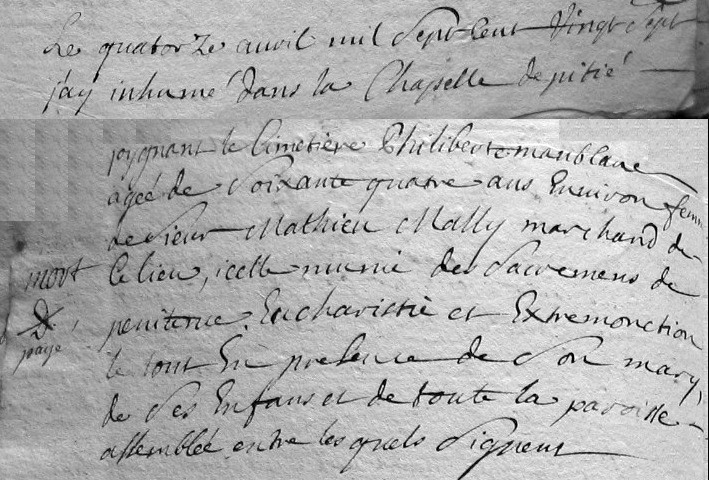 Le quatorze avril mil Sept Cent Vingt Sept
j'ay inhumé dans la Chapelle de pitié
joygnant le Cimetière Philiberte manblanc
agée de Soixante quatre ans Environ femme
de Sieur Mathieu Mally marchand de
mort
Ce lieu, icelle munie des Sacremens de
penitence, Eucharistie et Extremonction
payé
le tout En presence de Son mary,
de Ses Enfans et de toute la paroisse
assemblée entre les quels Signeront